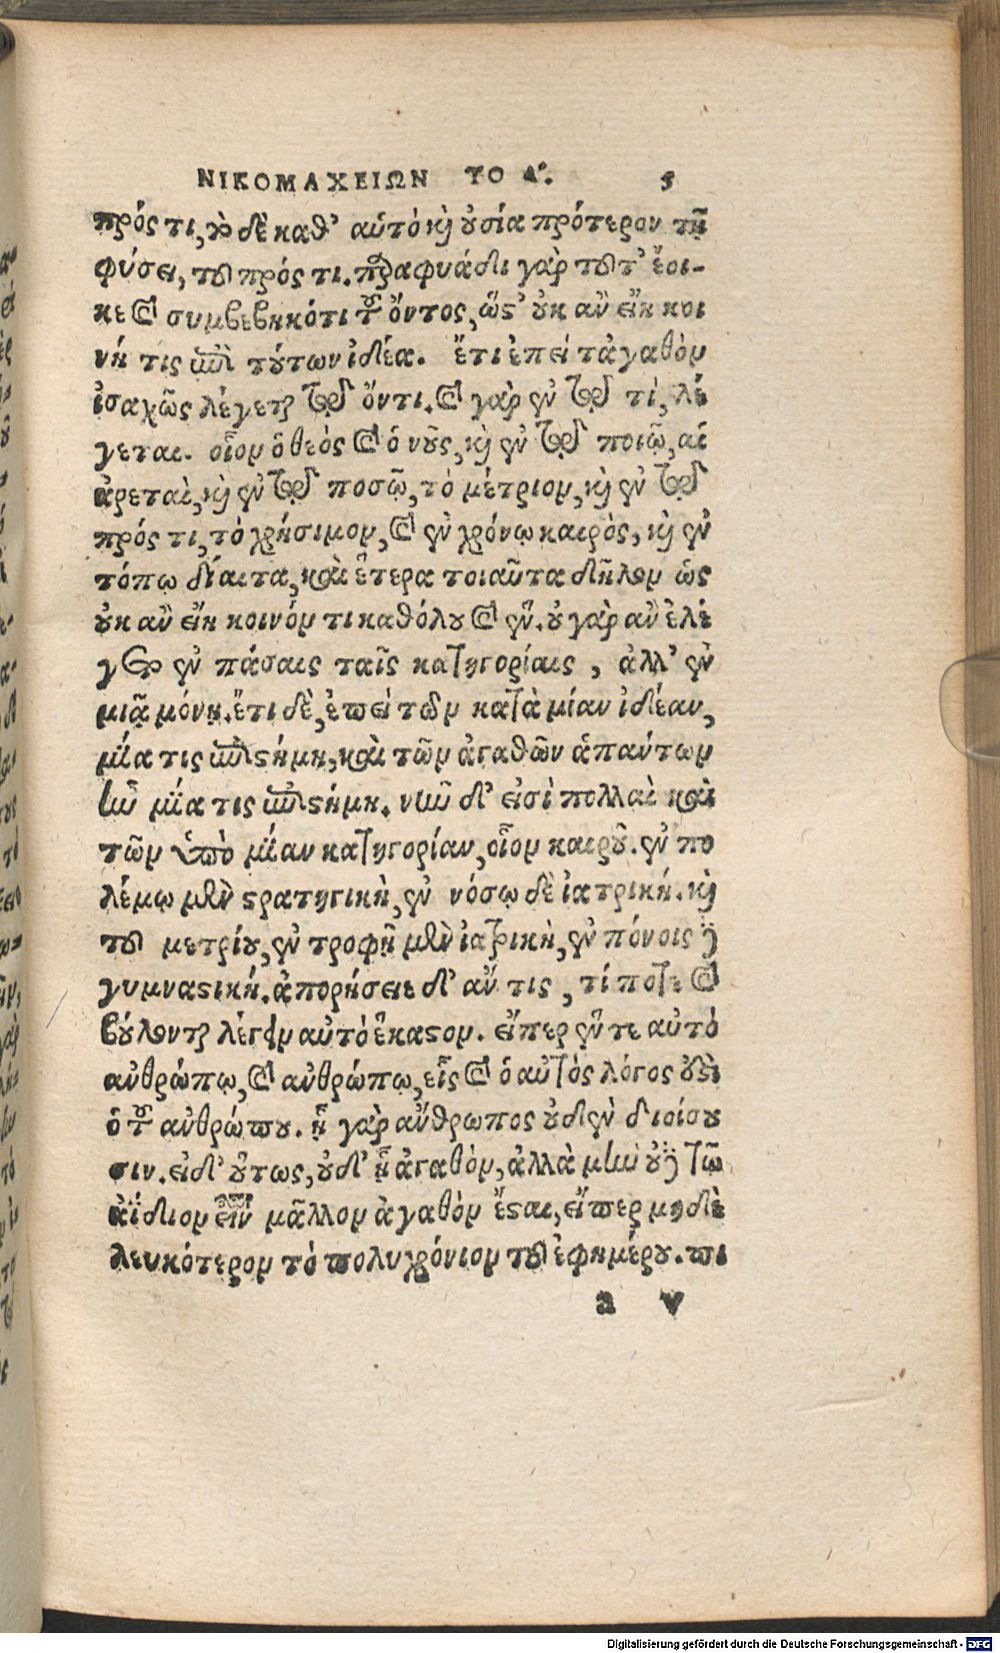 ΝΙΚΟΜΑΧΕΙΩΝ ΤΟ Α΄. 5
πρός τι, τὸ δὲ καθ' αὑτὸ καὶ ουσία πρότερον τῇ
φύσει, του πρός τι. παραφυάδι γὰρ τουτ' ἔοι-
κε καὶ συμβεβηκότι του ὄντος, ὥστ' ουκ ἂν εἴη κοι
νή τις ἐπὶ τούτων ἰδέα. ἔτι ἐπεὶ τἀγαθὸν
ἰσαχῶς λέγεται τῷ ὄντι. καὶ γὰρ ἐν τῷ τί, λέ
γεται. οἷον ὁ θεὸς καὶ ὁ νοῦς, καὶ ἐν τῷ ποιῷ, αἱ
ἀρεταὶ, καὶ ἐν τῷ ποσῷ, τὸ μέτριον, καὶ ἐν τῷ
πρός τι, τὸ χρήσιμον, καὶ ἐν χρόνῳ καιρὸς, καὶ ἐν
τόπῳ δίαιτα, καὶ ἕτερα τοιαῦτα δῆλον ὡς
οὐκ ἂν εἴη κοινόν τι καθόλου καὶ ἕν. οὐ γὰρ ἂν ἐλέ
γετο ἐν πάσαις ταῖς κατηγορίαις, ἀλλ' ἐν
μιᾷ μόνῃ. ἔτι δὲ, ἐπεὶ τῶν κατὰ μίαν ἰδέαν,
μία τις ἐπιστήμη, καὶ τῶν ἀγαθῶν ἁπάντων
ἦν μία τις ἐπιστήμη. νῦν δ' εἰσὶ πολλαὶ καὶ
τῶν ὑπὸ μίαν κατηγορίαν, οἷον καιροῦ. ἐν πο
λέμῳ μὲν στρατηγικὴ, ἐν νόσῳ δὲ ἰατρική. καὶ
του μετρίου, ἐν τροφῇ μὲν ἰατρικὴ, ἐν πόνοις δὲ
γυμναστική. ἀπορήσειε δ' ἄν τις, τί ποτε καὶ
βούλονται λέγειν αὐτὸ ἕκαστον. εἴπερ ἔν τε αὐτὸ
ανθρώπῳ, καὶ ανθρώπῳ, εἷς καὶ ὁ αὐτὸς λόγος ἐστὶ
ὁ του ανθρώπου. ᾗ γὰρ ἄνθρωπος οὐδὲν διοίσου
σιν. εἰ δ' οὕτως, οὐδ' ᾗ ἀγαθὸν, ἀλλὰ μὴν οὐδὲ τῷ
ἀΐδιον εἶναι μᾶλλον ἀγαθὸν ἔσται, εἴπερ μηδὲ
λευκότερον τὸ πολυχρόνιον του ἐφημέρου. πι
a v
Digitalisierung gefördert durch die Deutsche Forschungsgemeinschaft - DFG